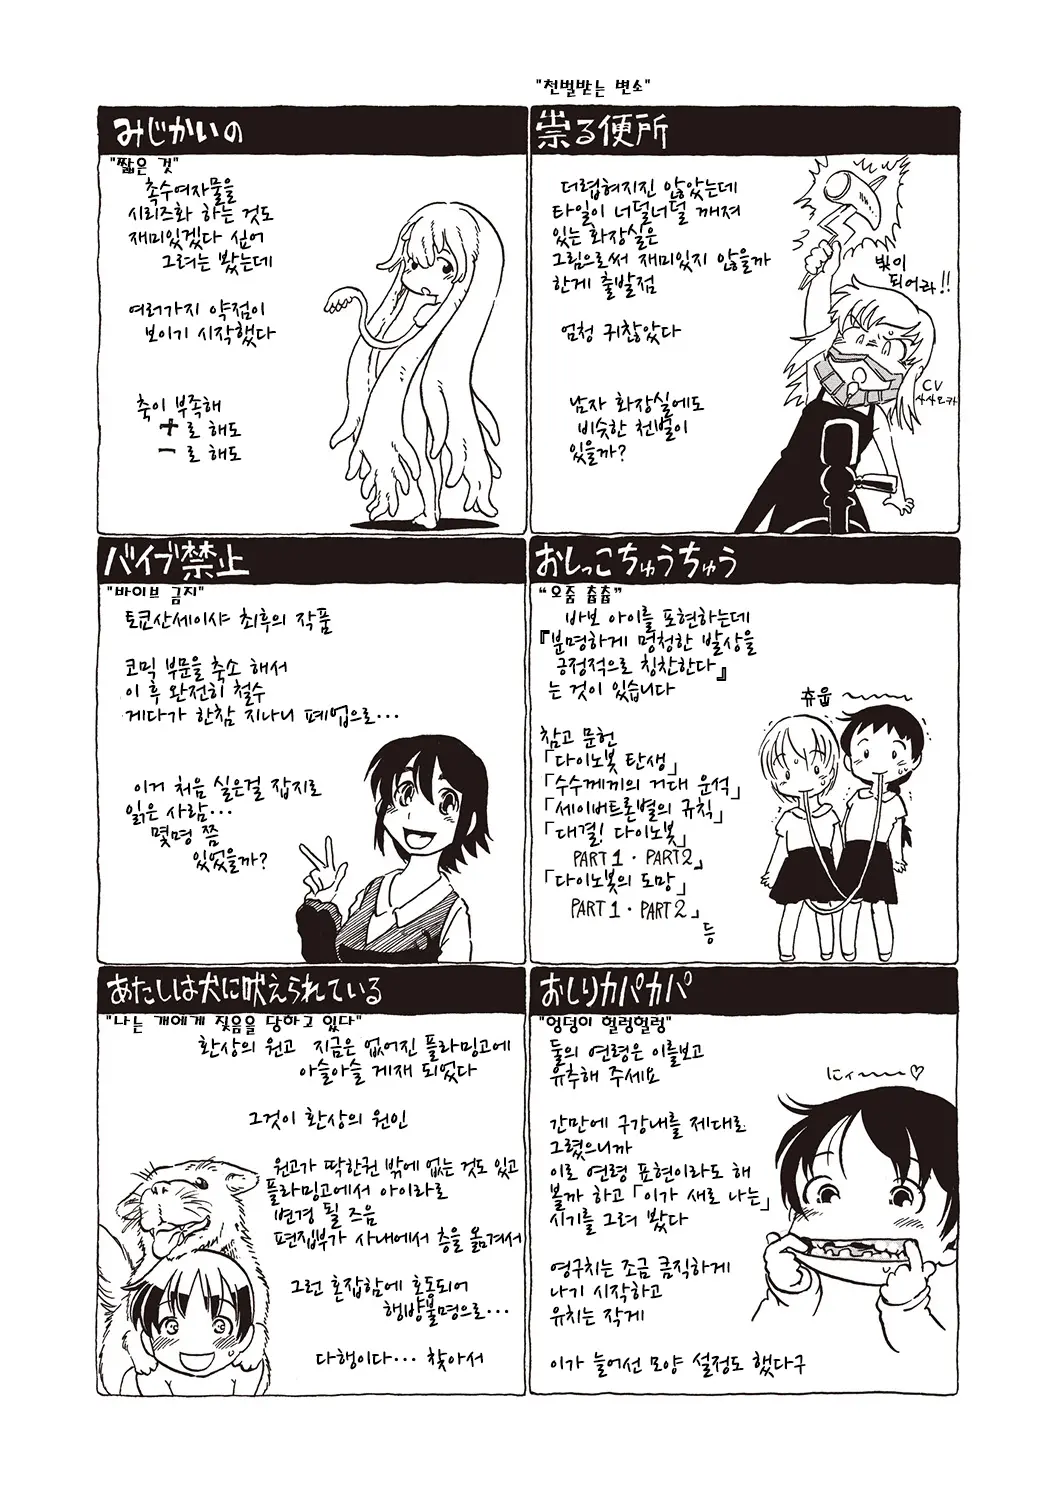 "천벌받는 변소"
みじかいの
"짧은 것"
촉수여자물을
시리즈화 하는 것도
재미있겠다 싶어
그려는 봤는데
여러가지 약점이
보이기 시작했다
축이 부족해
+로 해도
-로 해도
祟る便所
더럽혀지진 않았는데
타일이 너덜너덜 깨져
있는 화장실은
그림으로써 재미있지 않을까
한게 출발점
엄청 귀찮았다
남자 화장실에도
비슷한 천벌이
있을까?
빛이
되어라!!
CV
사사오카
バイブ禁止
"바이브 금지"
토쿄산세이샤 최후의 작품
코믹 부문을 축소 해서
이 후 완전히 철수
게다가 한참 지나니 폐업으로···
이거 처음 실은걸 잡지로
읽은 사람···
몇명 쯤
있었을까?
おしっこちゅうちゅう
"오줌 츕츕"
바보 아이를 표현하는데
『분명하게 멍청한 발상을
긍정적으로 칭찬한다』
는 것이 있습니다
참고 문헌
「다이노봇 탄생」
「수수께끼의 거대 운석」
「세이버트론별의 규칙」
「대결! 다이노봇」
PART 1 · PART 2」
「다이노봇의 도망」
PART 1 · PART 2」
등
츄웁~
あたしは犬に吠えられている
"나는 개에게 짖음을 당하고 있다"
환상의 원고 지금은 없어진 플라밍고에
아슬아슬 게재 되었다
그것이 환상의 원인
원고가 딱한권 밖에 없는 것도 있고
플라밍고에서 아이라로
변경 될 즈음
편집부가 사내에서 층을 옮겨서
그런 혼잡함에 호동되어
행방불명으로···
다행이다··· 찾아서
おしりカパカパ
"엉덩이 헐렁헐렁"
둘의 연령은 이를보고
유추해 주세요
간만에 구강내를 제대로
그렸으니까
이로 연령 표현이라도 해
볼까 하고 「이가 새로 나는」
시기를 그려 봤다
영구치는 조금 큼직하게
나기 시작하고
유치는 작게
이가 늘어선 모양 설정도 했다구
にィ~♡